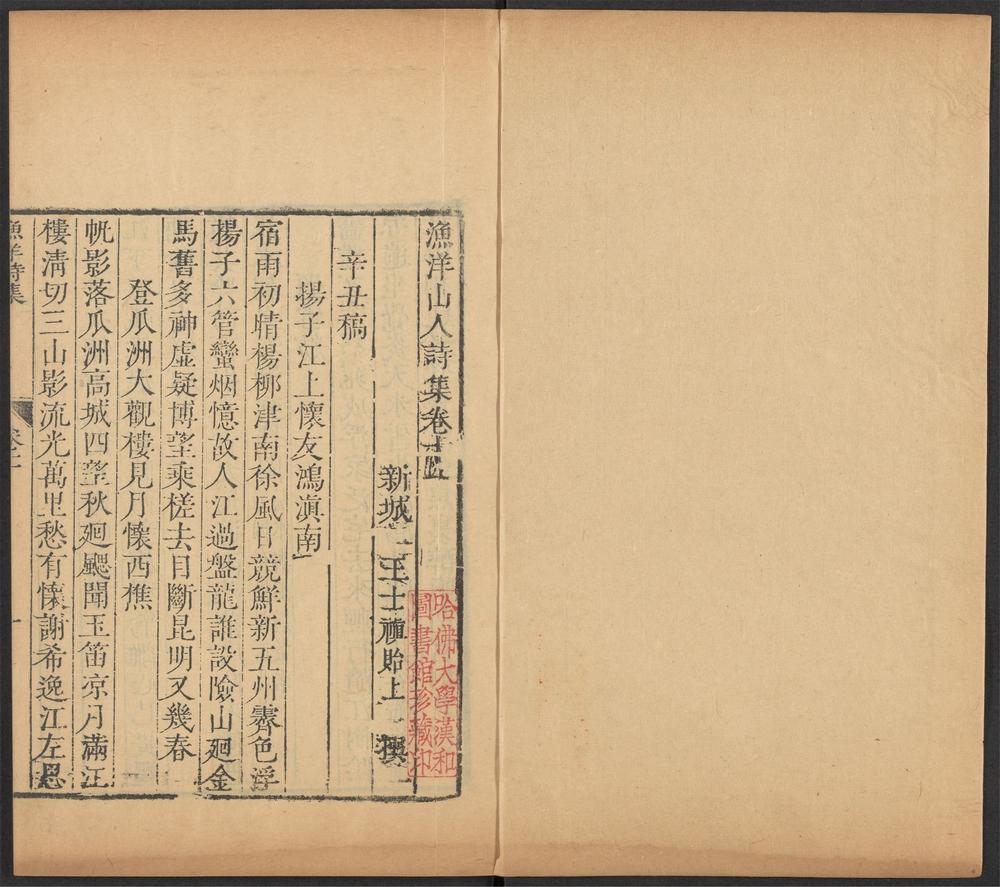 漁洋山人詩集卷十五
新城 王士禛貽上 撰
哈佛大學漢和圖書館珍藏印
辛丑稿
揚子江上懷友鴻滇南
宿雨初晴楊柳津南徐風日競鮮新五州霽色浮
揚子六管蠻烟憶故人江過盤龍誰設險山廻金
馬舊多神虛疑博望乘槎去目斷昆明又幾春
登瓜洲大觀樓見月懷西樵
帆影落瓜洲高城四望秋廻颷聞玉笛凉月滿江
樓清切三山影流光萬里愁有懷謝希逸江左思
漁洋詩集